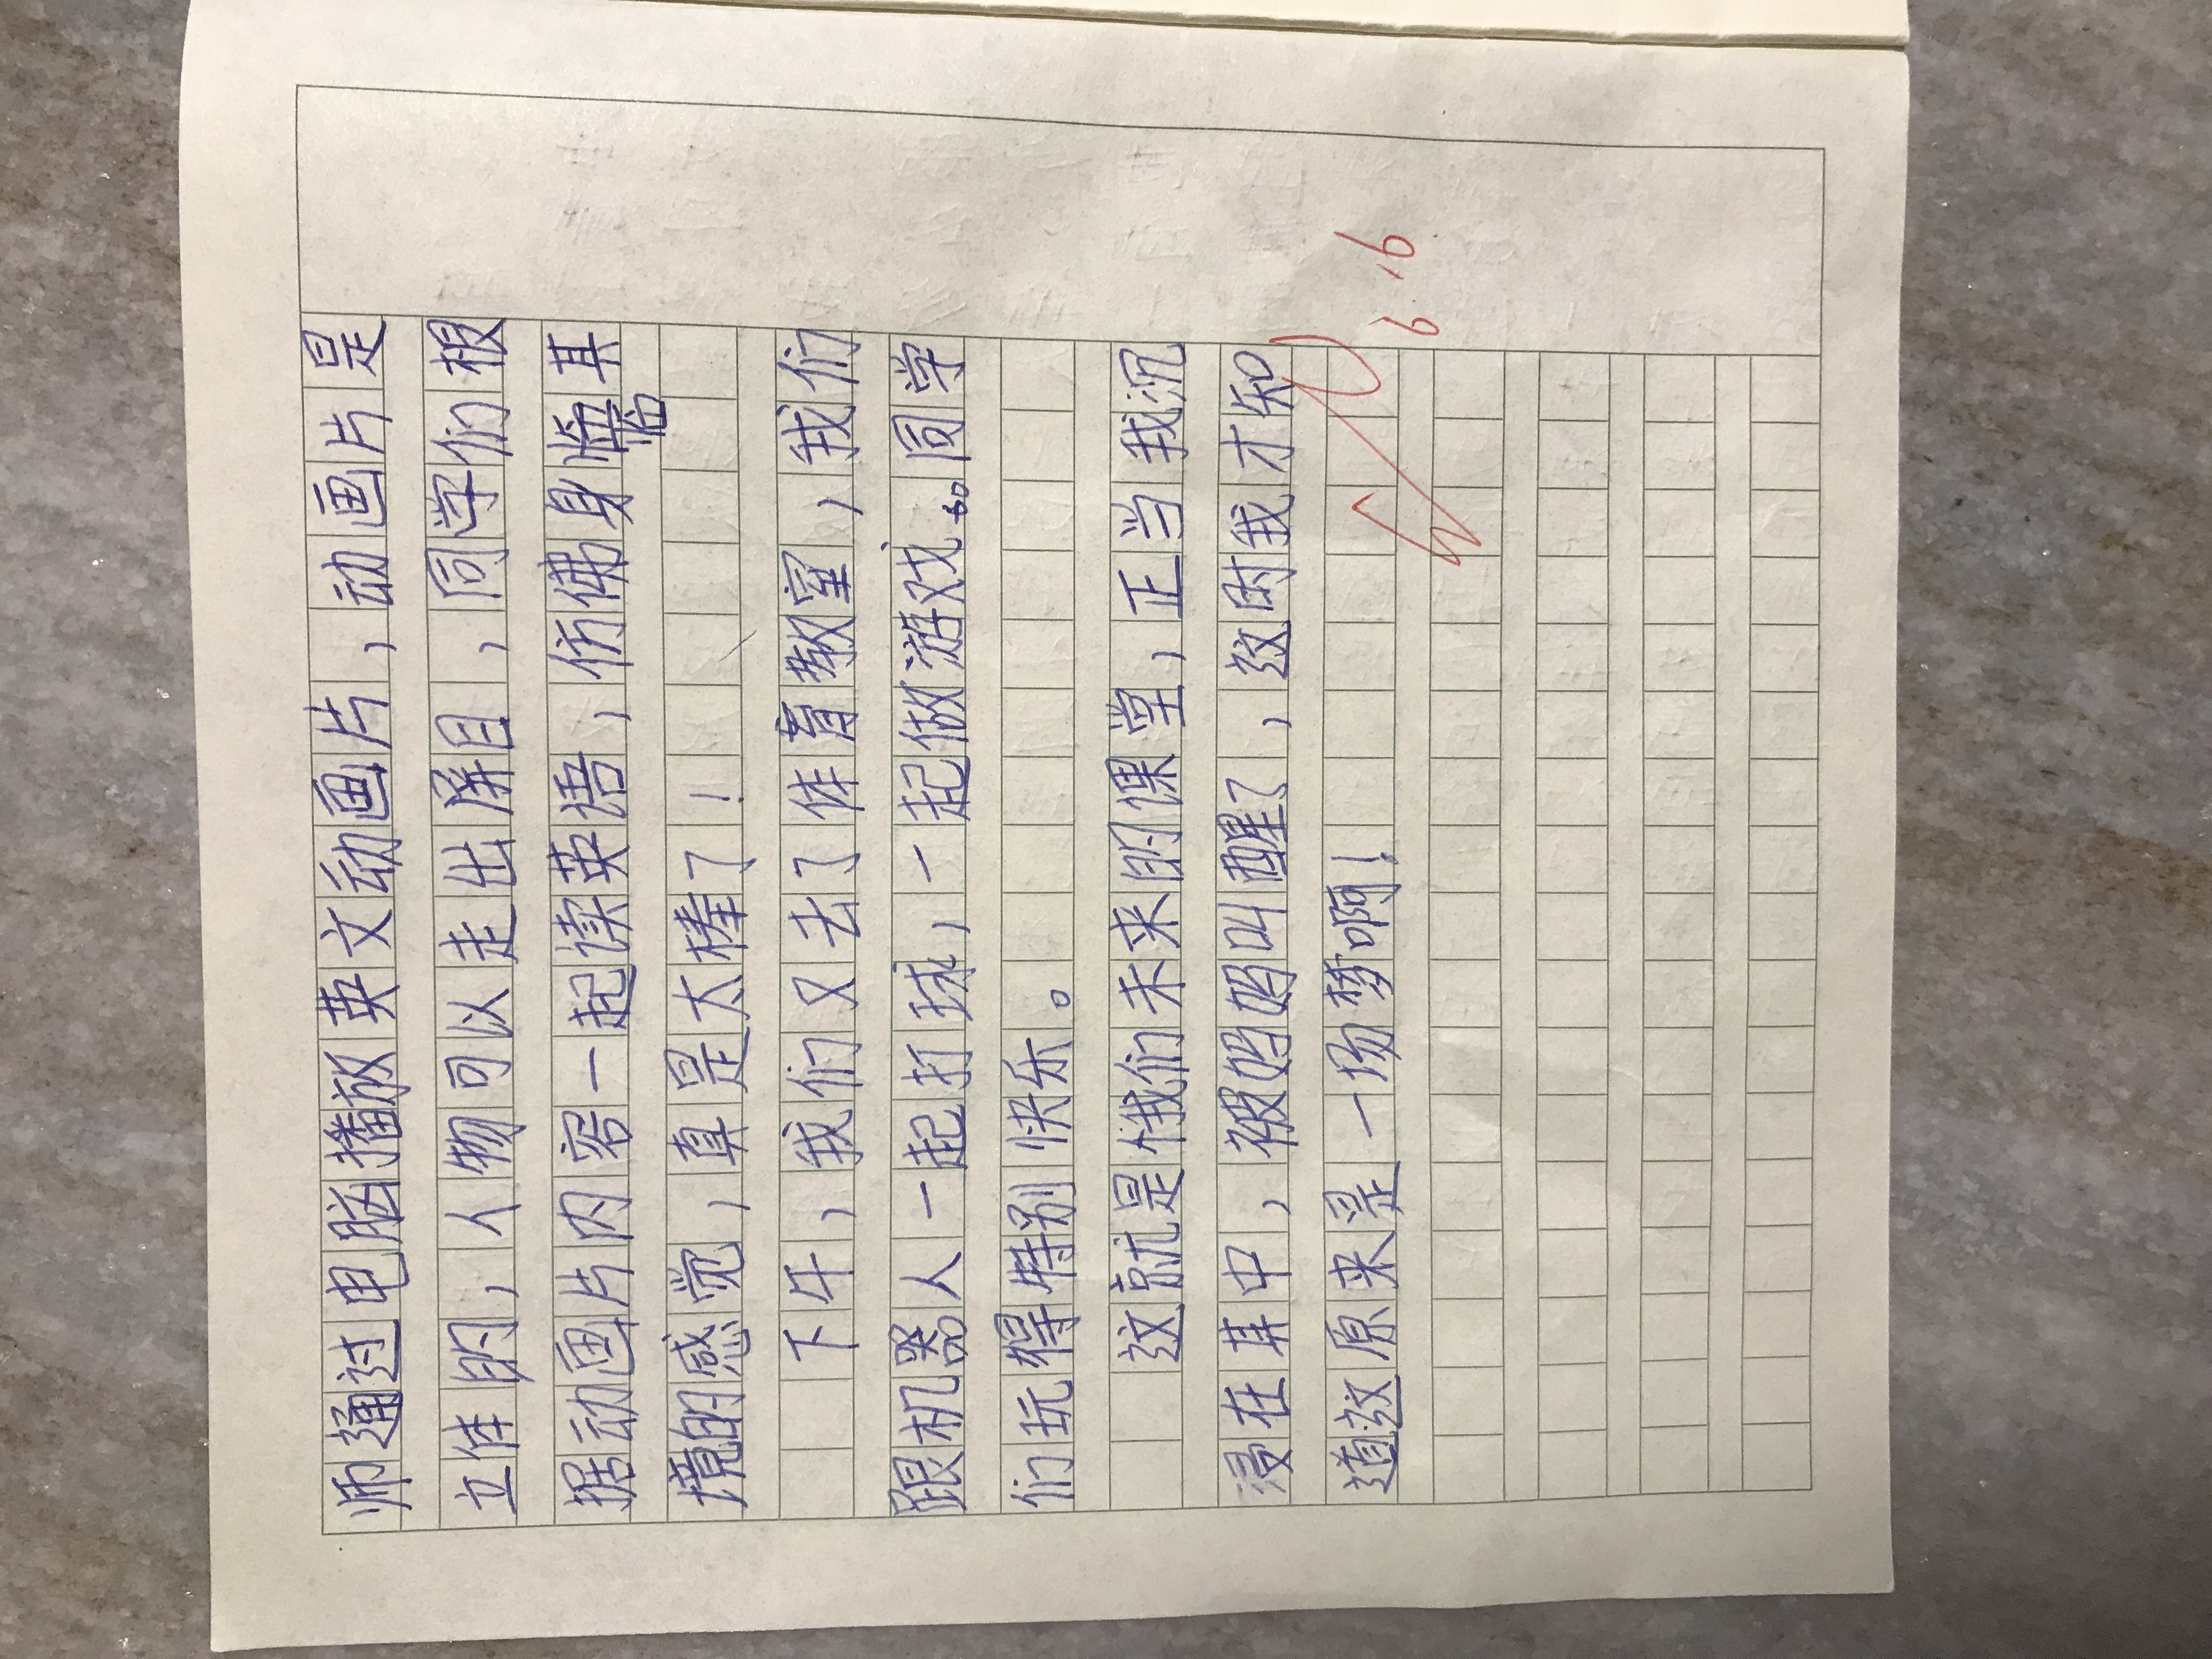 师通过电脑播放英文动画片，动画片是
立体的，人物可以走出屏目，同学们根
据动画片内容一起读英语，仿佛身临其
境的感觉，真是太棒了！
下午，我们又去了体育教室，我们
跟机器人一起打球，一起做游戏。同学
们玩得特别快乐。
这就是我们未来的课堂，正当我沉
浸在其中，被妈妈叫醒了，这时我才知
道这原来是一场梦啊！
6.16